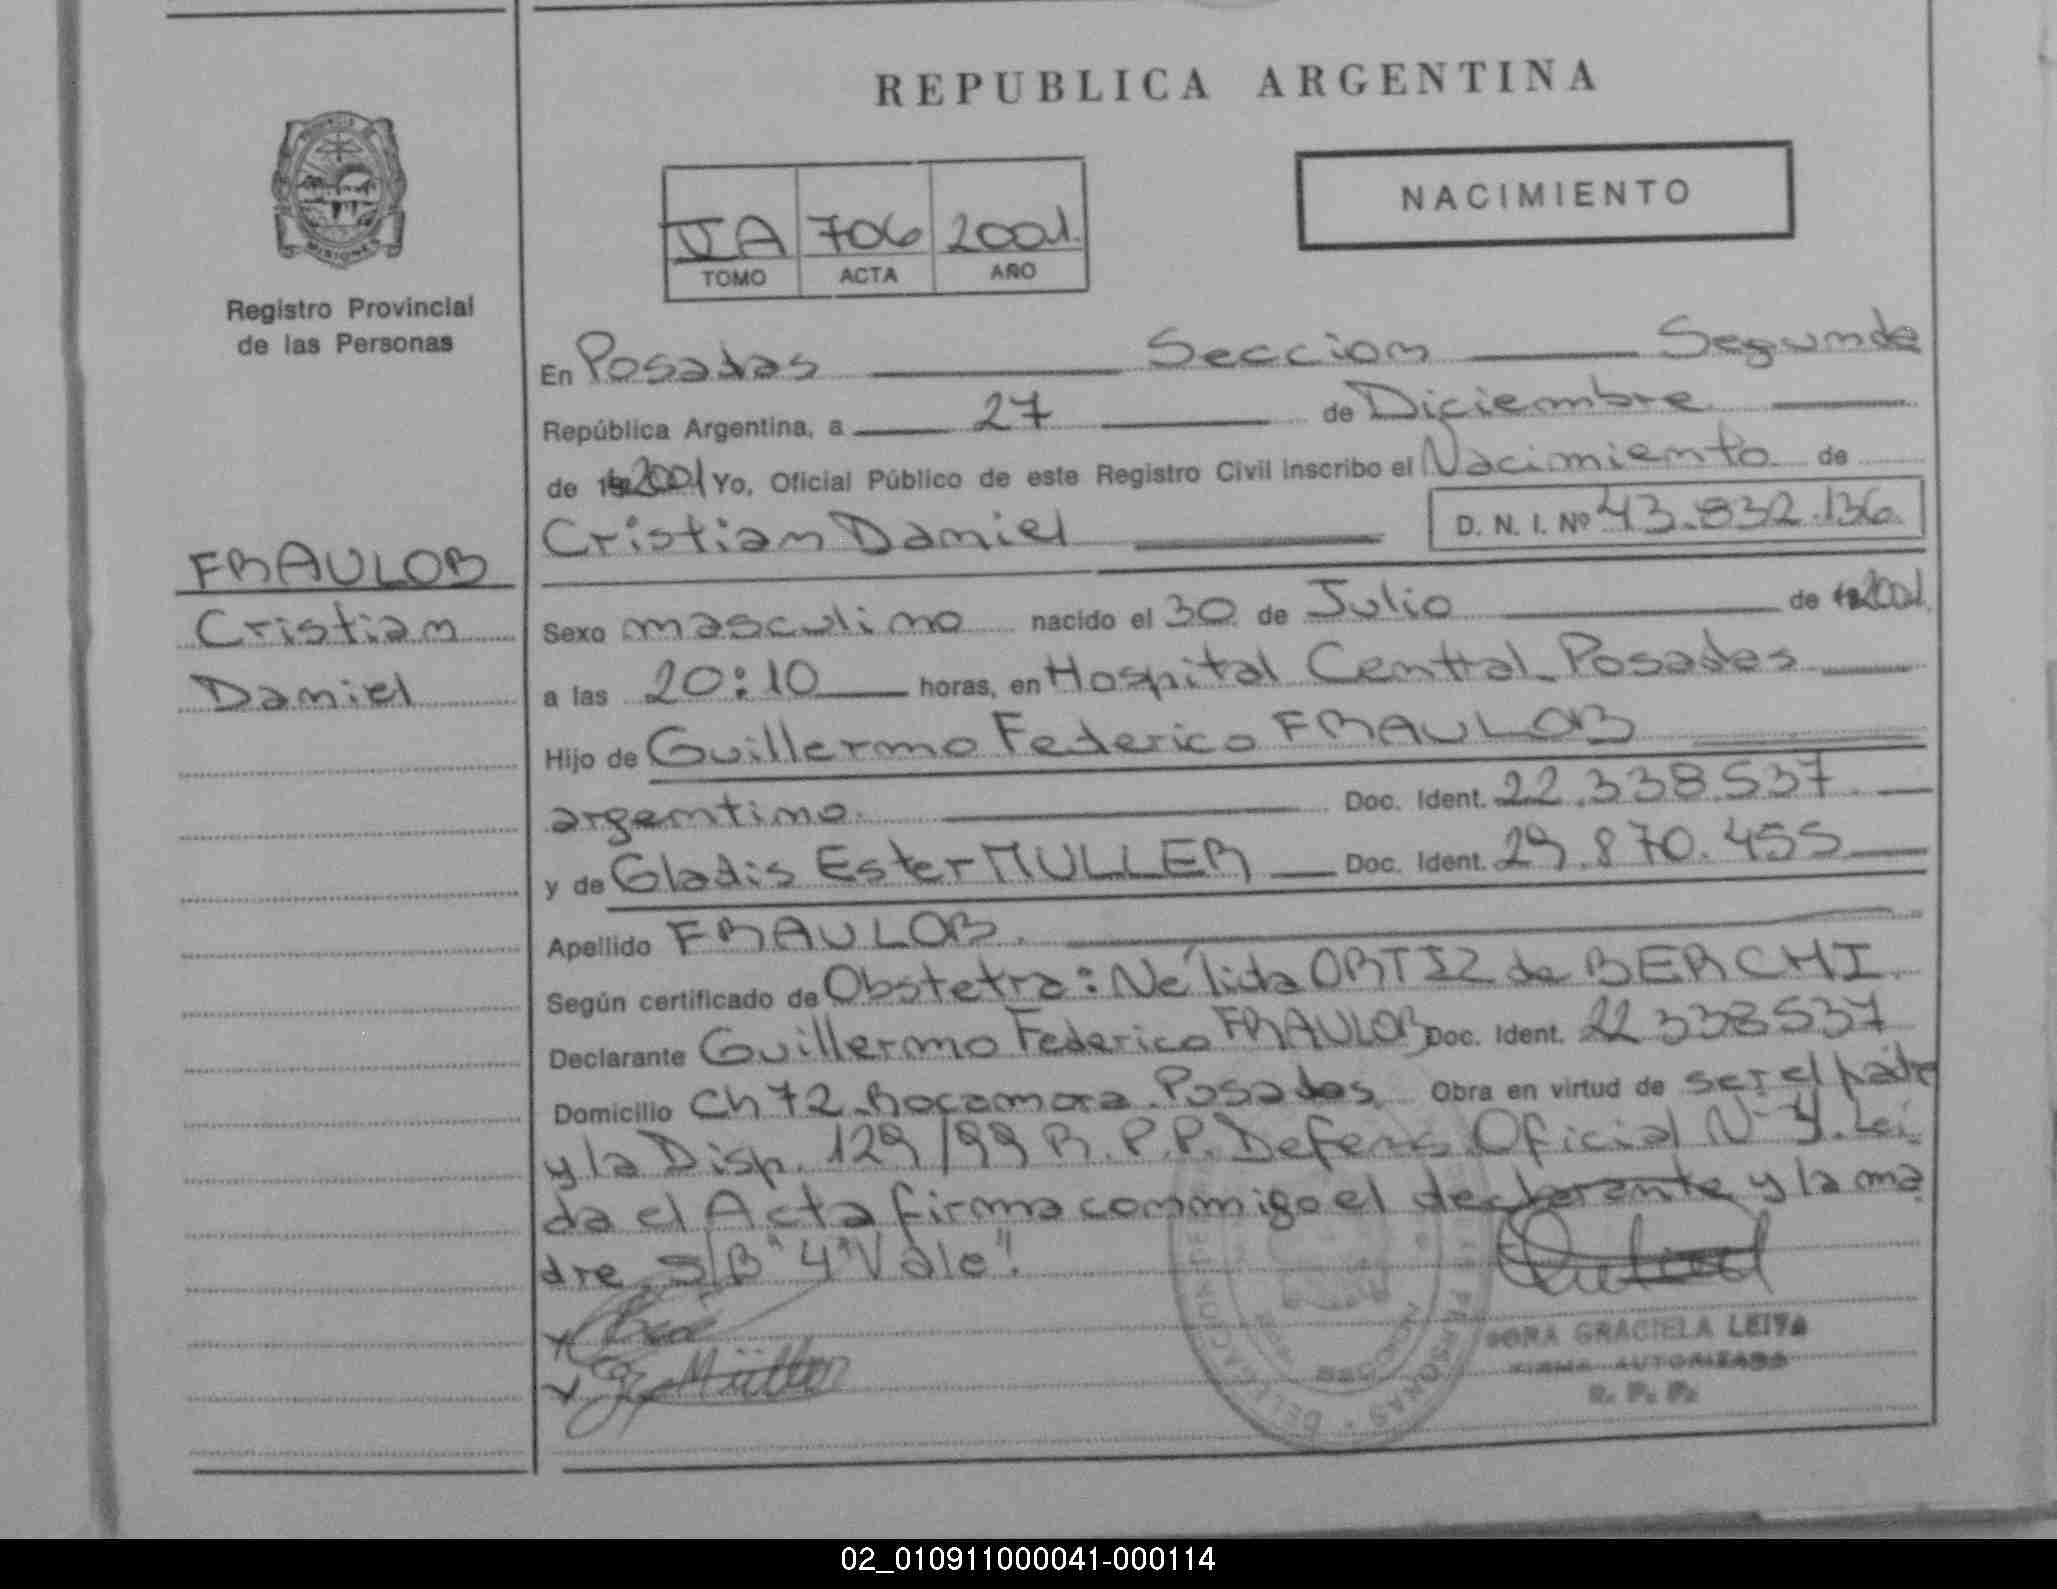 REPUBLICA ARGENTINA
NACIMIENTO
JA 706 2001.
TOMO ACTA AÑO
Registro Provincial
de las Personas
FRAULOB
Cristian
Daniel
En Posadas Seccion Segunda
República Argentina, a 27 de Diciembre
de 2001 Yo, Oficial Público de este Registro Civil inscribo el Nacimiento de
Cristian Daniel D. N. I. Nº 43.832.136.
Sexo masculino nacido el 30 de Julio de 2001.
a las 20:10 horas, en Hospital Central Posadas
Hijo de Guillermo Federico FRAULOB
argentino. Doc. Ident. 22.338.537.
y de Gladis Ester MULLER Doc. Ident. 29.870.455
Apellido FRAULOB.
Según certificado de Obstetra: Nélida ORTIZ de BERCHI.
Declarante Guillermo Federico FRAULOB Doc. Ident. 22338537
Domicilio Ch 72 Rocamora Posadas Obra en virtud de ser el padre
y la Disp. 129/99 R.P.P. Defens. Oficial Nº 4. Lei
da el Acta firma conmigo el declarante y la ma
dre S/B "4" Vale".
Müller
DORA GRACIELA LEIVA
FIRMA AUTORIZADA
R. P. P.
02_010911000041-000114